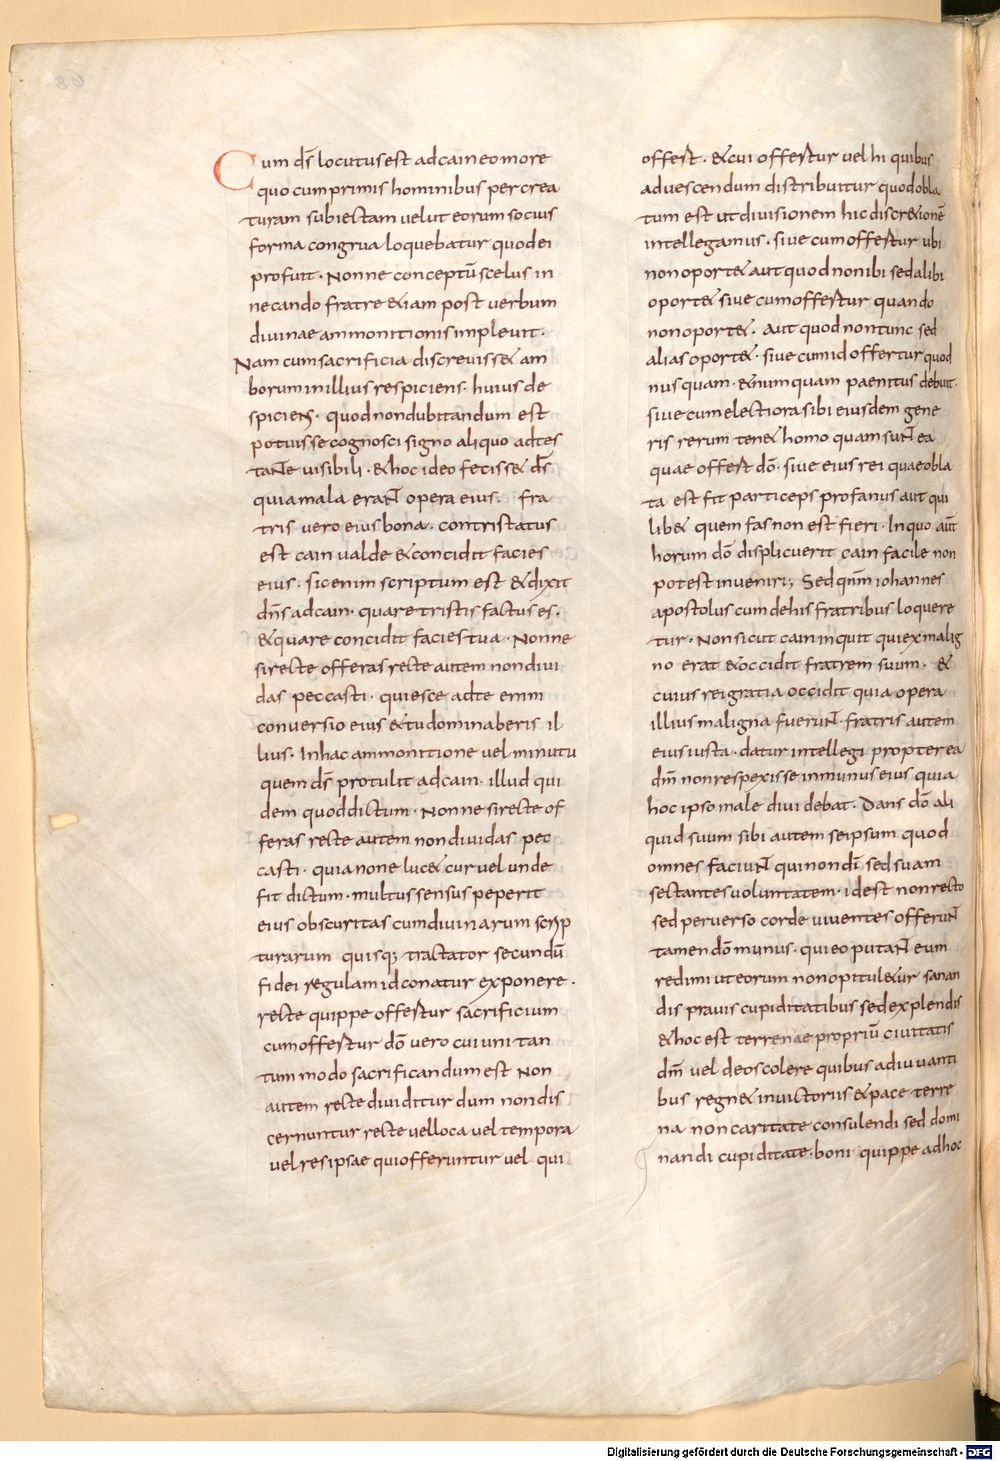 Cum ds̄ locutus est ad cain eo more
quo cum primis hominibus per crea
turam subiectam uelut eorum socius
forma congrua loquebatur quod ei
profuit. Nonne conceptū scelus in
necando fratre &iam post uerbum
diuinae ammonitionis impleuit.
Nam cum sacrificia discreuiss& am
borum in illius respiciens. huius de
spiciens. quod non dubitandum est
potuisse cognosci signo aliquo adtes
tante uisibili. & hoc ideo feciss& ds̄
quia mala erant opera eius. fra
tris uero eius bona. contristatus
est cain ualde & concidit facies
eius. sic enim scriptum est & dixit
dn̄s ad cain. quare tristis factus es.
& quare concidit facies tua. Nonne
si recte offeras recte autem non diui
das peccasti. quiesce ad te enim
conuersio eius & tu dominaberis il
lius. In hac ammonitione uel minutu
quem ds̄ protulit ad cain. illud qui
dem quod dictum. Nonne si recte of
feras recte autem non diuidas pec
casti. quia non eluc& cur uel unde
fit dictum. multus sensus peperit
eius obscuritas cum diuinarum scrip
turarum quisq; tractator secundū
fidei regulam id conatur exponere.
recte quippe offertur sacrificium
cum offertur dō uero cui uni tan
tum modo sacrificandum est Non
autem recte diuiditur dum non dis
cernuntur recte uel loca uel tempora
uel res ipsae qui offeruntur uel qui
offert. & cui offertur uel hi quibus
ad uescendum distribuitur quod obla
tum est ut diuisionem hic discr&ionē
intellegamus. siue cum offertur ubi
non oport& aut quod non ibi sed alibi
oport& siue cum offertur quando
non oport&. aut quod non tunc sed
alias oport&. siue cum id offertur quod
nusquam. & numquam paenitus debuit.
siue cum electiora sibi eiusdem gene
ris rerum ten& homo quam sunt ea
quae offert dō. siue eius rei quae obla
ta est fit particeps profanus aut qui
lib& quem fas non est fieri. In quo aut̄
horum dō displicuerit cain facile non
potest inueniri; Sed qn̄m iohannes
apostolus cum de his fratribus loquere
tur. Non sicut cain inquit qui ex malig
no erat & occidit fratrem suum. &
cuius rei gratia occidit quia opera
illius maligna fuerunt. fratris autem
eius iusta. datur intellegi propterea
dm̄ non respexisse in munus eius quia
hoc ipso male diuidebat. Dans dō ali
quid suum sibi autem se ipsum quod
omnes faciunt qui non dī sed suam
sectantes uoluntatem. id est non recto
sed peruerso corde uiuentes offerunt
tamen dō munus. quieo putant eum
redimi ut eorum non opitul&ur sanan
dis prauis cupiditatibus sed explendis
& hoc est terrenae propriū ciuitatis
dm̄ uel deos colere quibus adiuuanti
bus regn& in uictoriis & pace terre
na non caritate consulendi sed domi
nandi cupiditate. boni quippe ad hoc
Digitalisierung gefördert durch die Deutsche Forschungsgemeinschaft - DFG